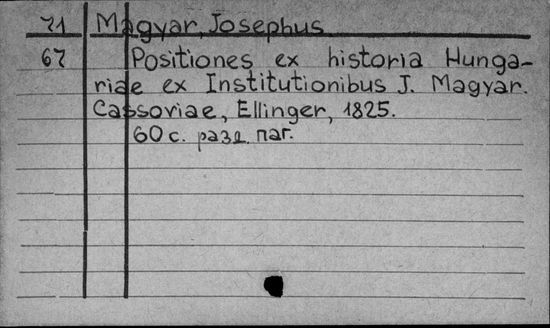 71 Magyar, Josephus
67 Positiones ex historia Hunga-
riae ex Institutionibus J. Magyar.
Cassoviae, Ellinger, 1825.
60 с. разд. паг.